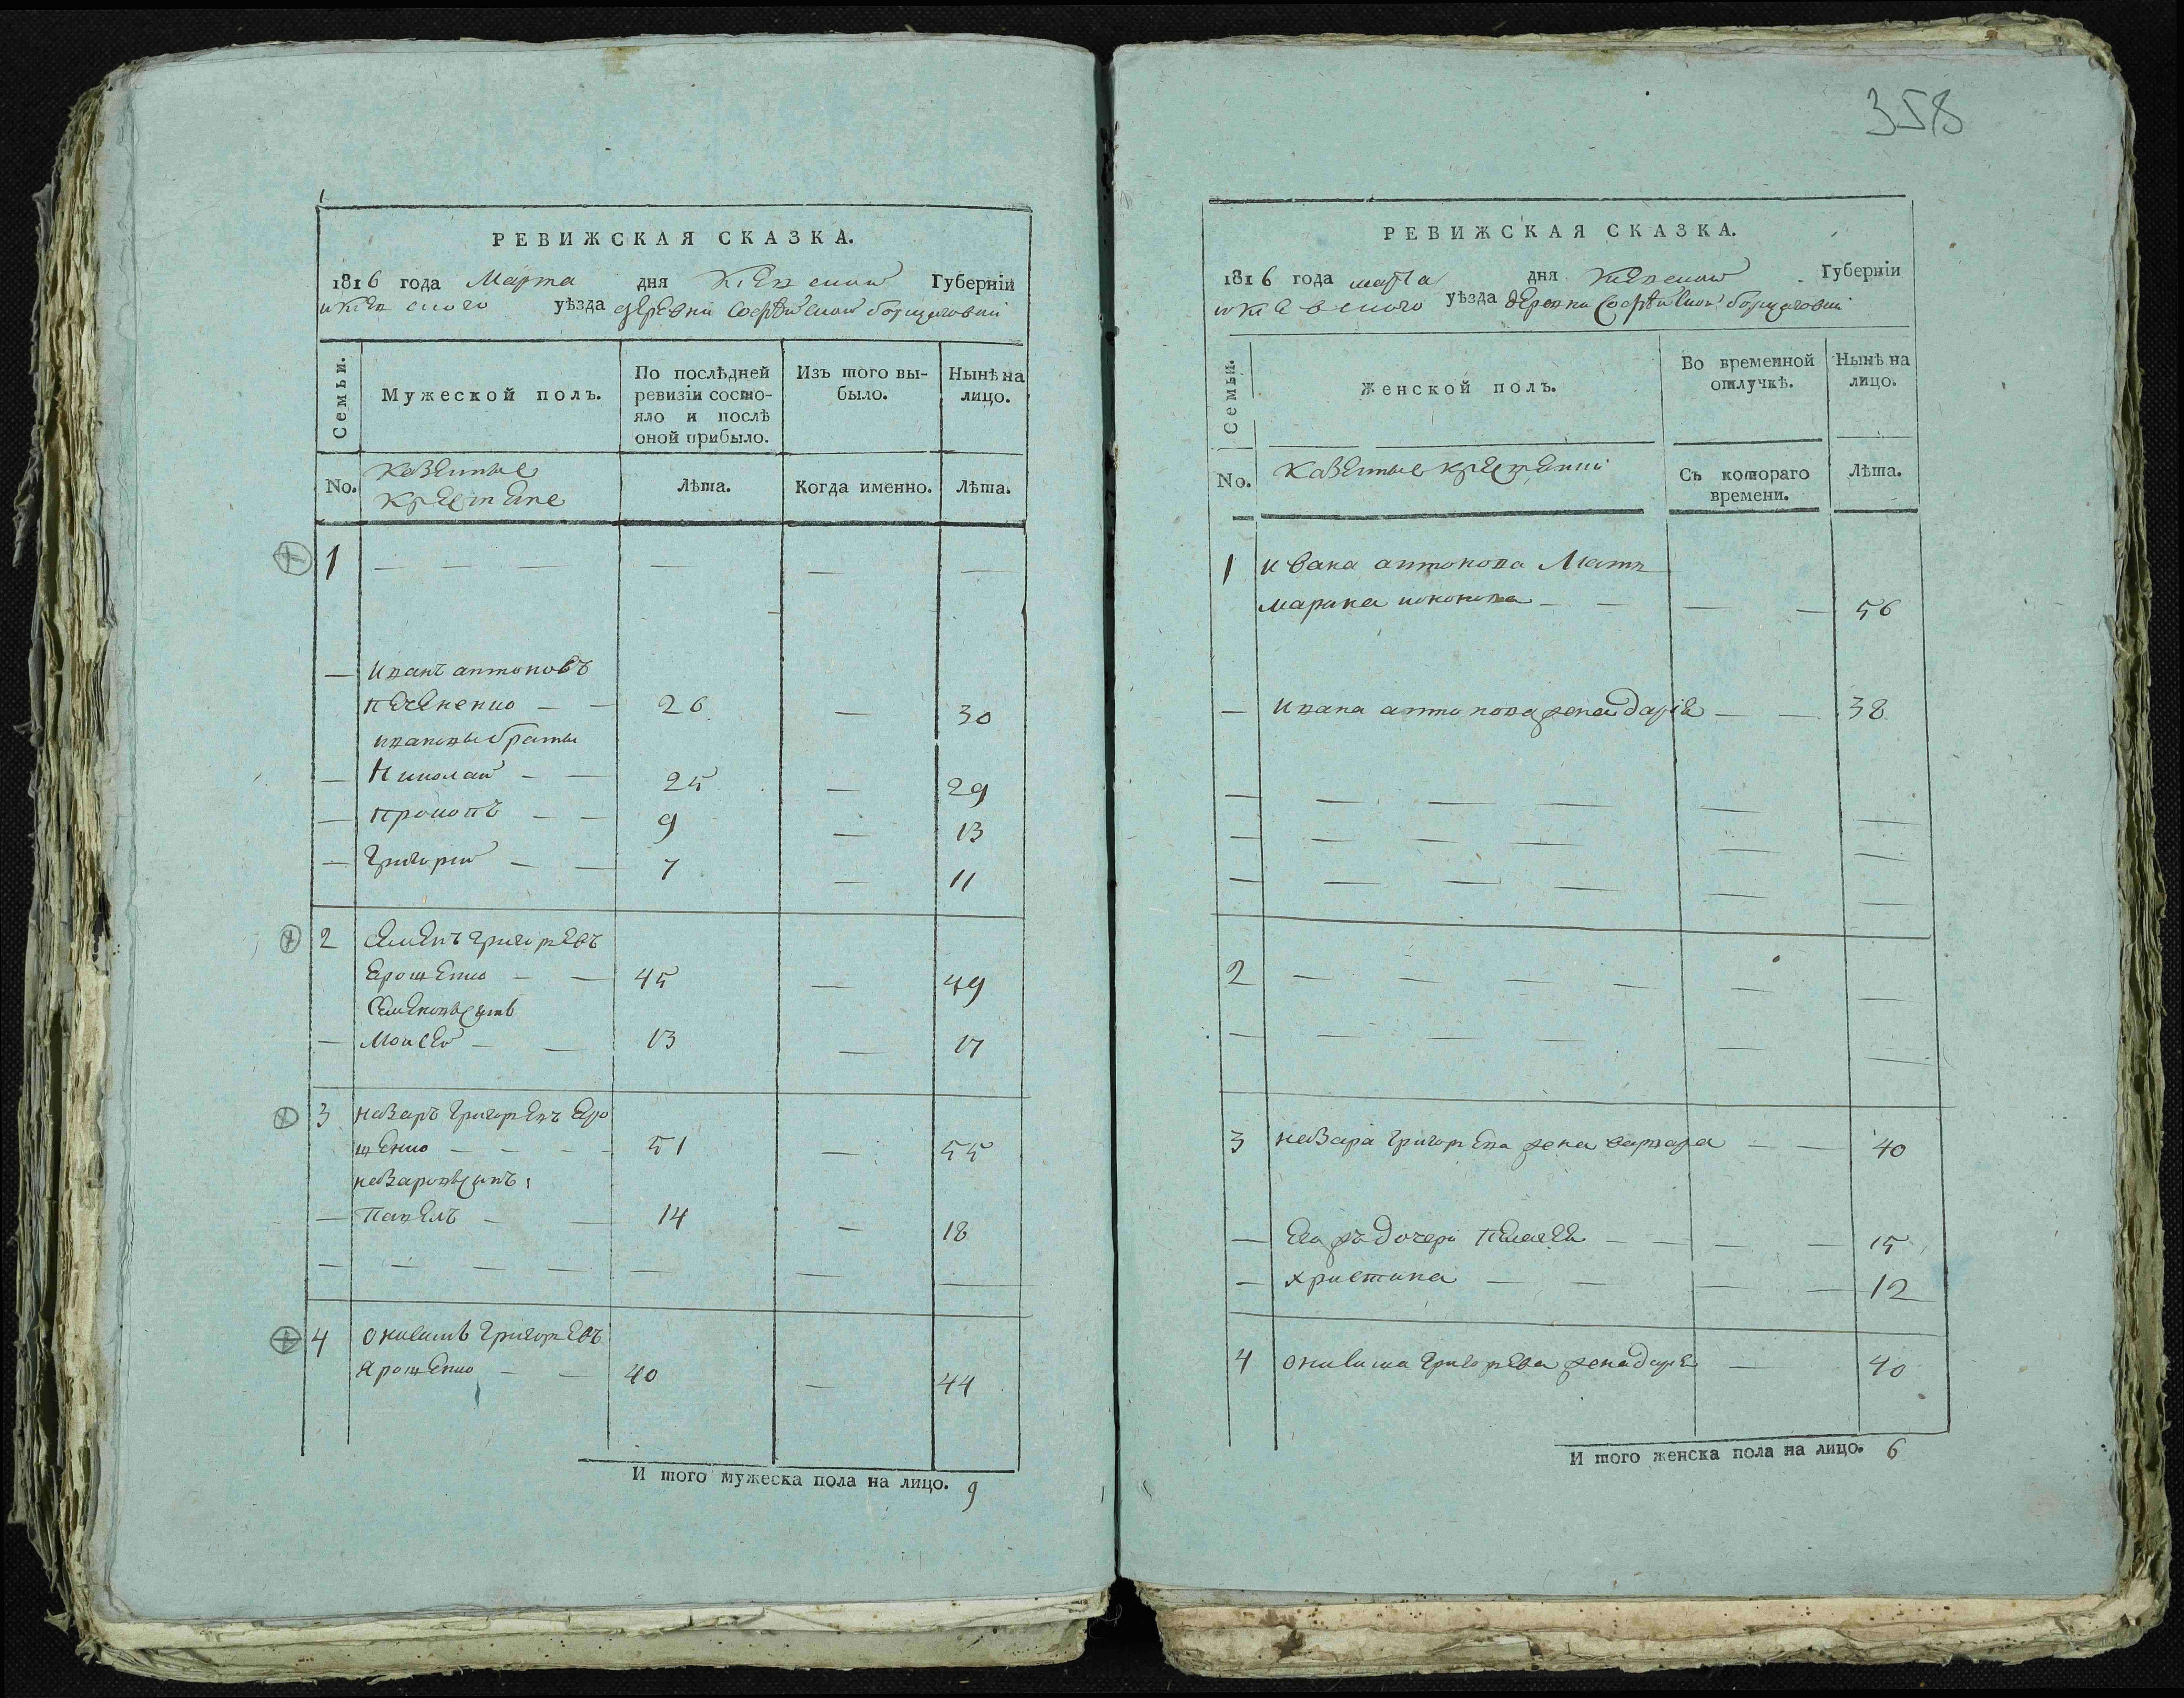 РЕВИЖСКАЯ СКАЗКА.
1816 года Марта дня Киевской Губерніи
и Киевского уѣзда деревни Софѣиской борщаговки
Семьи.
Мужеской полъ.
По послѣдней ревизіи состояло и послѣ оной прибыло.
Изъ того выбыло.
Нынѣ на лицо.
No.
казенные
крестяне
Лѣта.
Когда именно.
Лѣта.
1
иванъ антоновъ
26 30
ивановы браты
Николай 25 29
прокопъ 9 13
григорий 7 11
2 семенъ григорьевъ
ерошенко 45 49
семеновъ сынъ
Моисей 13 17
3 назаръ григорьевъ еро
шенко 51 55
назаровъ сынъ
павелъ 14 18
4 григорьевъ
ярошенко 40 44
И того мужеска пола на лицо. 9
358
РЕВИЖСКАЯ СКАЗКА.
1816 года марта дня Киевской Губерніи
и Киевского уѣзда деревни Софѣиской борщаговки
Семьи.
Женской полъ.
Во временной отлучкѣ.
Нынѣ на лицо.
No.
казенные крестянки
Съ котораго времени.
Лѣта.
1 ивана антонова Мать
марина 56
ивана антонова жена дария 38
2
3 назара григорьева жена варвара 40
его дочери пелагея 15
христина 12
4 григорьева жена дария 40
И того женска пола на лицо. 6